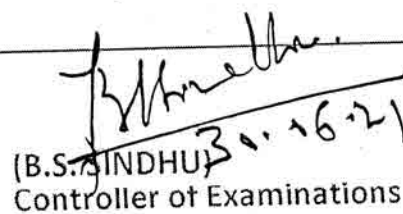 30.06.21
(B.S. SINDHU)
Controller of Examinations